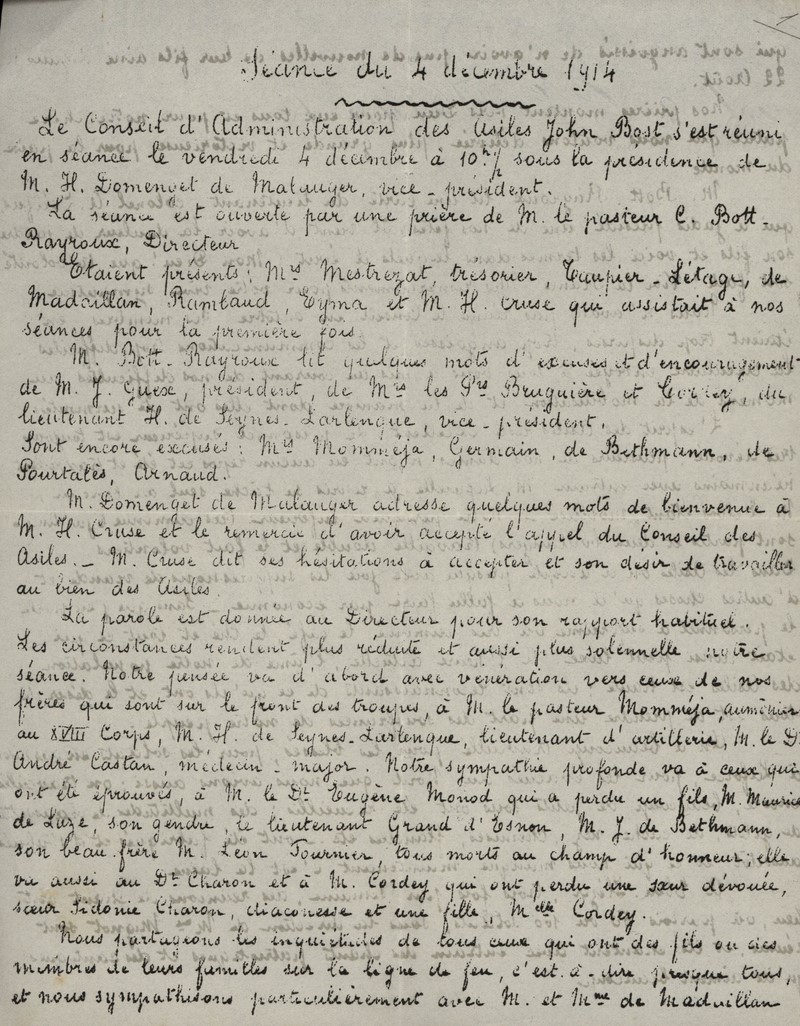 Séance du 4 décembre 1914
Le Conseil d'Administration des Asiles John Bost s'est réuni
en séance le vendredi 4 décembre à 10h ½ sous la présidence de
M. H. Domenget de Malauger, vice-président.
La séance est ouverte par une prière de M. le pasteur C. Bott-
Rayroux, Directeur
Etaient présents: Mrs Mestrezat, trésorier, Taupier-Létage, de
Madaillan, Rambaud, Eyma et M. H. Cruse qui assistait à nos
séances pour la première fois.
M. Bott-Rayroux lit quelques mots d'excuses et d'encouragement
de M. J. Guex, président, de Mrs les Prs Bruguière et Cordey, du
lieutenant H. de Seynes-Larlenque, vice-président.
Sont encore excusés: Mrs Momméja, Germain, de Bethmann, de
Pourtalès, Arnaud.
M. Domenget de Malauger adresse quelques mots de bienvenue à
M. H. Cruse et le remercie d'avoir accepté l'appel du Conseil des
Asiles. - M. Cruse dit ses hésitations à accepter et son désir de travailler
au bien des Asiles.
La parole est donnée au Directeur pour son rapport habituel.
Les circonstances rendent plus réduite et aussi plus solennelle notre
séance. Notre pensée va d'abord avec vénération vers ceux de nos
frères qui sont sur le front des troupes, à M. le pasteur Momméja, aumônier
au XVIII Corps, M. H. de Seynes-Larlenque, lieutenant d'artillerie, M. le Dr
André Castan, médecin-major. Notre sympathie profonde va à ceux qui
ont été éprouvés, à M. le Dr Eugène Monod qui a perdu un fils, M. Maurice
de Luze, son gendre, le lieutenant Grand d'Esnon, M. J. de Bethmann,
son beau-frère M. Léon Tournier, tous morts au champ d'honneur; elle
va aussi au Dr Charon et à M. Cordey qui ont perdu une sœur dévouée,
sœur Sidonie Charon, diaconesse et une fille, Melle Cordey.
Nous partageons les inquiétudes de tous ceux qui ont des fils ou des
membres de leurs familles sur la ligne de feu, c'est-à-dire presque tous,
et nous sympathisons particulièrement avec M. et Mme de Madaillan